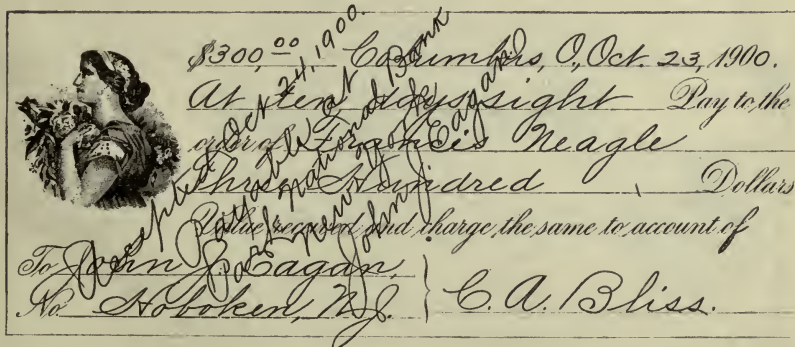 $300,00 Columbus, O., Oct. 23, 1900.
At ten days sight Pay to the
order of Francis Neagle
Three Hundred Dollars
Value received and charge the same to account of
To John J. Eagan,
No Hoboken, N.J. } C. A. Bliss.
Accepted Oct 24, 1900.
Payable at
Park National Bank
New York
John J. Eagan